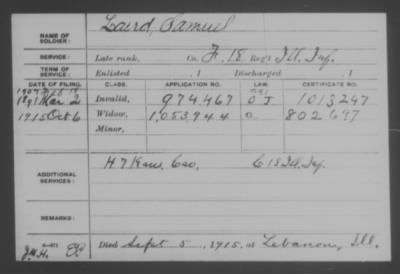 Laird, Samuel
NAME OF SOLDIER:
SERVICE: Late rank, Co. F, 18 Reg't Ill. Inf.
TERM OF SERVICE: Enlisted , 1 Discharged , 1
DATE OF FILING. CLASS. APPLICATION NO. LAW. CERTIFICATE NO.
1907 Feb
1891 Mar 2 Invalid, 974,467 1013247
1915 Oct 6 Widow, 1,053,944 802697
Minor,
ADDITIONAL SERVICES: H 7 Kans Cav. C 18 Ill. Inf.
REMARKS:
Died Sept 5, 1915, at Lebanon, Ill.